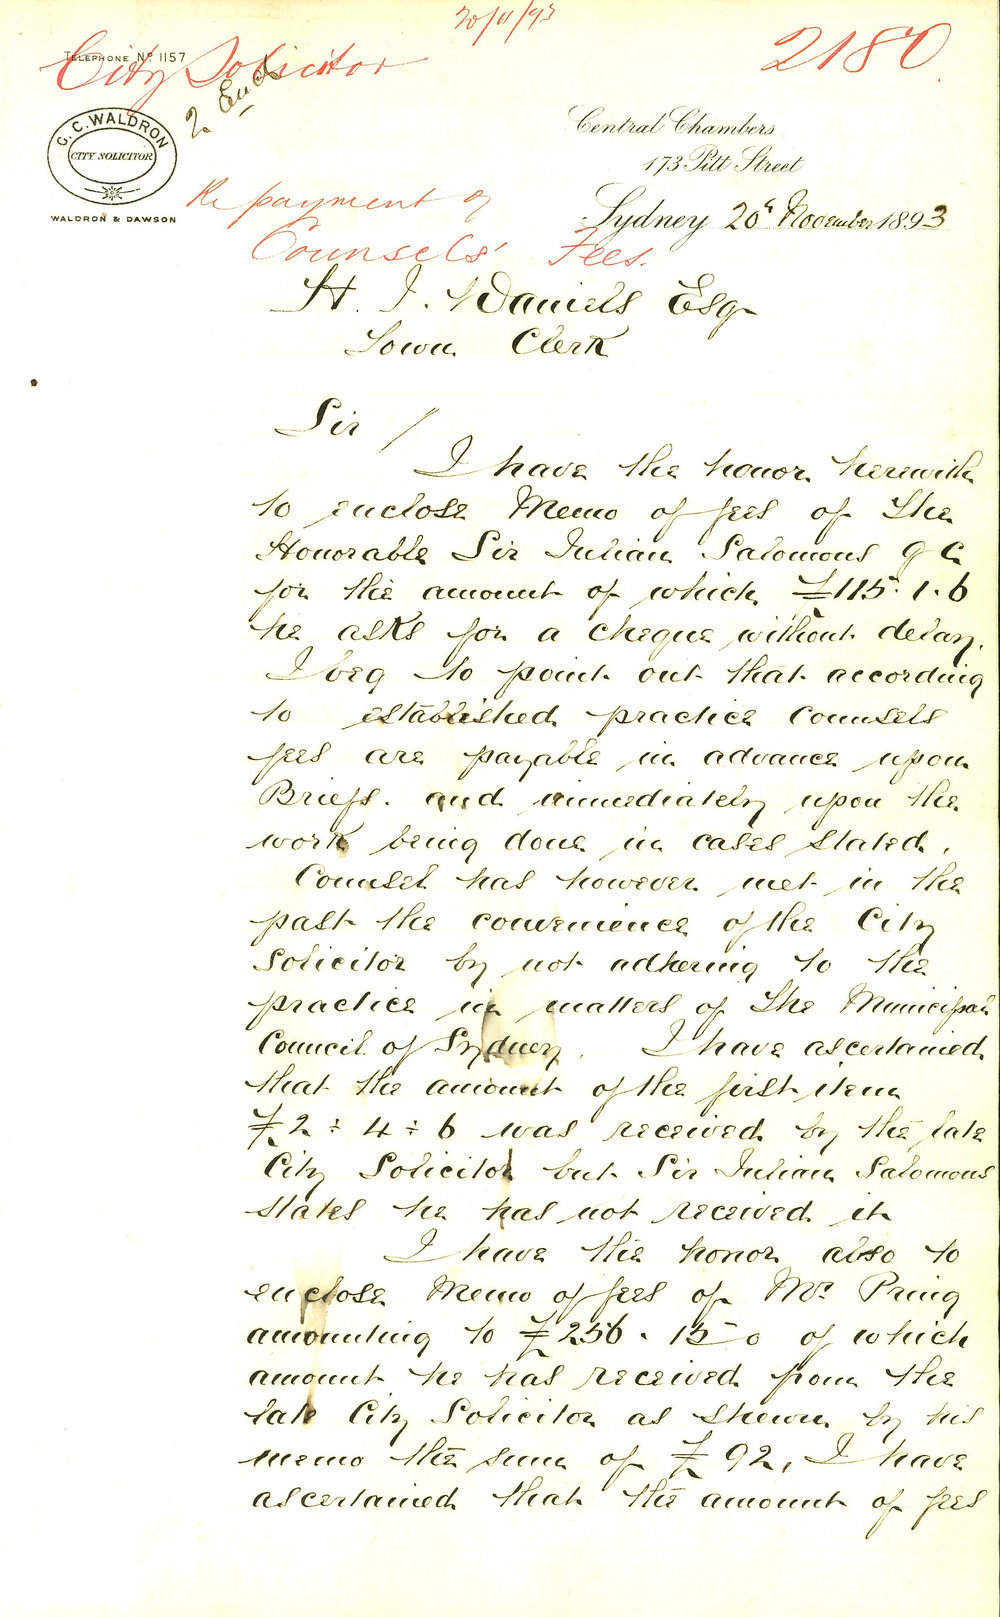 20/11/93
2180
TELEPHONE No 1157
City Solicitor
2 Encl
G. C. WALDRON
CITY SOLICITOR
WALDRON & DAWSON
Central Chambers
173 Pitt Street
Sydney 20th November 1893
Re payment of
Counsels' Fees.
H. J. Daniels Esq
Town Clerk
Sir /
I have the honor herewith
to enclose Memo of fees of The
Honorable Sir Julian Salomons Q C
for the amount of which £115. 1. 6
he asks for a cheque without delay.
I beg to point out that according
to established practice Counsels
fees are payable in advance upon
Briefs. and immediately upon the
work being done in cases stated.
Counsel has however met in the
past the convenience of the City
Solicitor by not adhering to the
practice in matters of The Municipal
Council of Sydney. I have ascertained
that the amount of the first item
£2 : 4 : 6 was received by the late
City Solicitor but Sir Julian Salomons
states he has not received it
I have the honor also to
enclose Memo of fees of Mr. Pring
amounting to £256. 15 0 of which
amount he has received from the
late City Solicitor as shewn by his
memo the sum of £92, I have
ascertained that the amount of fees